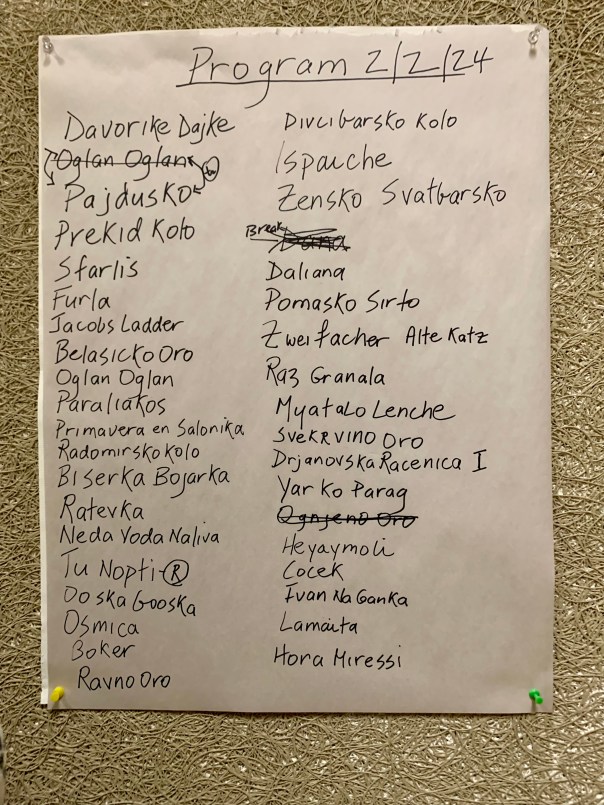 Program 2/2/24
Davorike Dajke
Oglan Oglan
Pajdusko
Prekid Kolo
Sfarlis
Furla
Jacobs Ladder
Belasicko Oro
Oglan Oglan
Paraliakos
Primavera en Salonika
Radomirsko kolo
Biserka Bojarka
Ratevka
Neda Voda Naliva
Tu Nopti-R
Doska Gooska
Osmica
Boker
Ravno Oro
Divcibarsko Kolo
Ispaiche
Zensko Svatbarsko
Break
Daliana
Pomasko Sirto
Zweifacher Alte Katz
Raz Granala
Myatalo Lenche
Svekrvino Oro
Drjanovska Racenica I
Yarko Parag
Ognjeno Oro
Heyaymoli
Cocek
Ivan Na Ganka
Lamaita
Hora Miressi